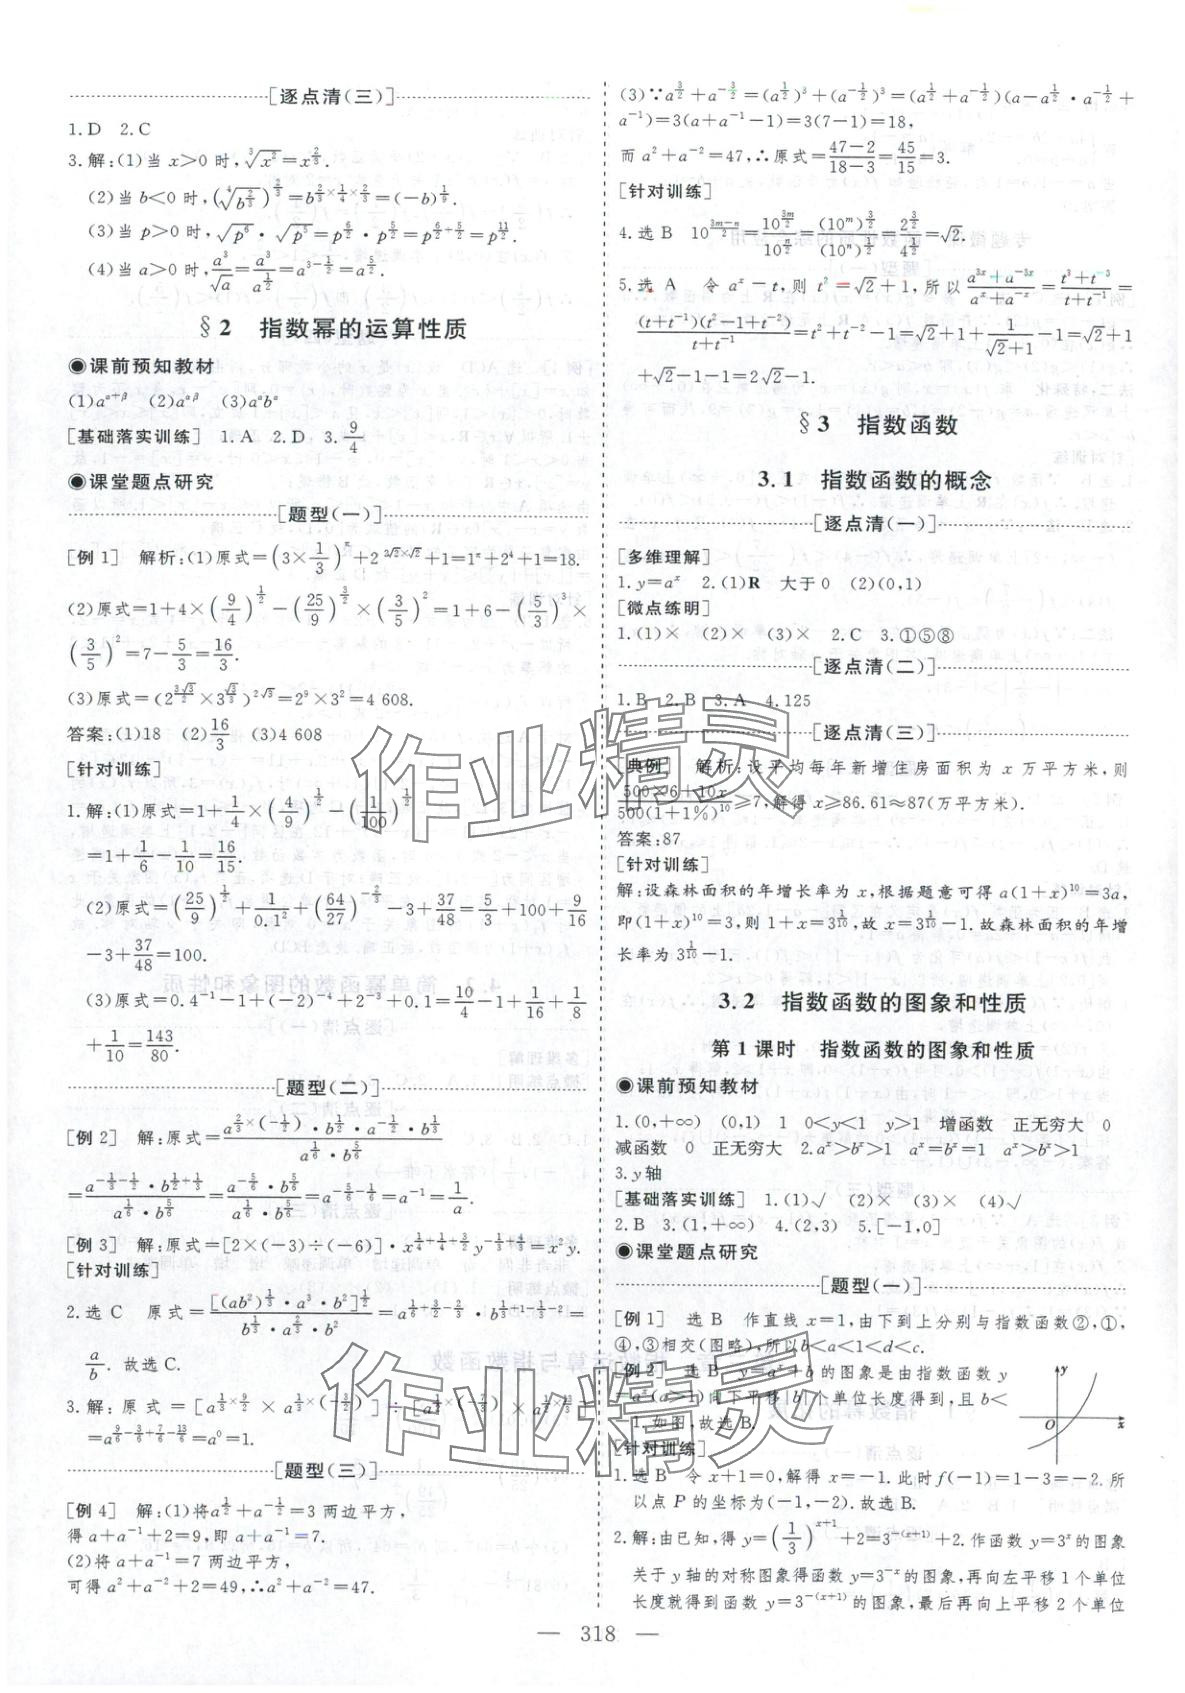 [逐点清(三)]
1.D 2.C
3.解:(1)当 x>0 时,∛(x²)=x^(2/3).
(2)当 b<0 时,(⁴√(b^(2/3)))^(2/3)=b^(2/3×1/4×2/3)=(-b)^(1/9).
(3)当 p>0 时,√(p⁶)·√(p⁵)=p^(6/2)·p^(5/2)=p^(6/2+5/2)=p^(11/2).
(4)当 a>0 时,a³/√a=a³/a^(1/2)=a^(3-1/2)=a^(5/2).
§2 指数幂的运算性质
◉课前预知教材
(1)a^(α+β) (2)a^(αβ) (3)a^α b^α
[基础落实训练] 1.A 2.D 3.9/4
◉课堂题点研究
[题型(一)]
[例 1] 解析:(1)原式=(3×1/3)^π+2^(2√2×√2)+1=1^π+2⁴+1=18.
(2)原式=1+4×(9/4)^(1/2)-(25/9)^(3/2)×(3/5)²=1+6-(5/3)³×
(3/5)²=7-5/3=16/3.
(3)原式=(2^(3√3/2)×3^(√3/3))^(2√3)=2⁹×3²=4 608.
答案:(1)18 (2)16/3 (3)4 608
[针对训练]
1.解:(1)原式=1+1/4×(4/9)^(1/2)-(1/100)^(1/2)
=1+1/6-1/10=16/15.
(2)原式=(25/9)^(1/2)+1/0.1²+(64/27)^(-2/3)-3+37/48=5/3+100+9/16
-3+37/48=100.
(3)原式=0.4⁻¹-1+(-2)⁻⁴+2⁻³+0.1=10/4-1+1/16+1/8
+1/10=143/80.
[题型(二)]
[例 2] 解:原式=(a^(2/3×(-1/2))·b^(1/2)·a^(-1/2)·b^(1/3))/(a^(1/6)·b^(5/6))
=(a^(-1/3-1/2)·b^(1/2+1/3))/(a^(1/6)·b^(5/6))=(a^(-5/6)·b^(5/6))/(a^(1/6)·b^(5/6))=a^(-5/6-1/6)=a⁻¹=1/a.
[例 3] 解:原式=[2×(-3)÷(-6)]·x^(1/4+1/4+3/2)y^(-1/3+4/3)=x²y.
[针对训练]
2.选 C 原式=[(ab²)^(1/3)·a³·b²]^(1/2)/(b^(1/3)·a^(2/3)·b²)=a^(1/6+3/2-2/3)·b^(1/3+1-1/3-2)=
a/b.故选 C.
3.解:原式=[a^(1/3×9/2)×a^(1/3×(-3/2))]÷[a^(1/2×(-7/3))×a^(1/2×13/3)]
=a^(9/6-3/6+7/6-13/6)=a⁰=1.
[题型(三)]
[例 4] 解:(1)将 a^(1/2)+a^(-1/2)=3 两边平方,
得 a+a⁻¹+2=9,即 a+a⁻¹=7.
(2)将 a+a⁻¹=7 两边平方,
可得 a²+a⁻²+2=49,∴a²+a⁻²=47.
(3)∵a^(3/2)+a^(-3/2)=(a^(1/2))³+(a^(-1/2))³=(a^(1/2)+a^(-1/2))(a-a^(1/2)·a^(-1/2)+
a⁻¹)=3(a+a⁻¹-1)=3(7-1)=18,
而 a²+a⁻²=47,∴原式=(47-2)/(18-3)=45/15=3.
[针对训练]
4.选 B 10^((3m-n)/2)=10^(3m/2)/10^(n/2)=(10^m)^(3/2)/(10^n)^(1/2)=4^(3/2)/=√2.
5.选 A 令 a^x=t,则 t²=√2+1,所以(a^(3x)+a^(-3x))/(a^x+a^(-x))=(t³+t⁻³)/(t+t⁻¹)=
(t+t⁻¹)(t²-1+t⁻²)/(t+t⁻¹)=t²+t⁻²-1=√2+1+1/(√2+1)-1=√2+1
+√2-1-1=2√2-1.
§3 指数函数
3.1 指数函数的概念
[逐点清(一)]
[多维理解]
1.y=a^x 2.(1)R 大于 0 (2)(0,1)
[微点练明]
1.(1)× (2)× (3)× 2.C 3.①⑤⑧
[逐点清(二)]
1.B 2.B 3.A 4.125
[逐点清(三)]
[典例] 解析:设平均每年新增住房面积为 x 万平方米,则
(500×6+10x)/(500(1+1%)¹⁰)≥7,解得 x≥86.61≈87(万平方米).
答案:87
[针对训练]
解:设森林面积的年增长率为 x,根据题意可得 a(1+x)¹⁰=3a,
即(1+x)¹⁰=3,则 1+x=3^(1/10),故 x=3^(1/10)-1.故森林面积的年增
长率为 3^(1/10)-1.
3.2 指数函数的图象和性质
第 1 课时 指数函数的图象和性质
◉课前预知教材
1.(0,+∞) (0,1) 1 0<y<1 y>1 增函数 正无穷大 0
减函数 0 正无穷大 2.a^x>b^x>1 a^x=b^x=1 a^x>b^x>1
3.y 轴
[基础落实训练] 1.(1)√ (2)× (3)× (4)√
2.B 3.(1,+∞) 4.(2,3) 5.[-1,0]
◉课堂题点研究
[题型(一)]
[例 1] 选 B 作直线 x=1,由下到上分别与指数函数②,①,
④,③相交(图略),所以 b<a<1<d<c.
[例 2] 选 B y=a^x+b 的图象是由指数函数 y
=a^x(a>1)向下平移|b|个单位长度得到,且 b<
-1.如图,故选 B.
y
O
x
[针对训练]
1.选 B 令 x+1=0,解得 x=-1.此时 f(-1)=1-3=-2.所
以点 P 的坐标为(-1,-2).故选 B.
2.解:由已知,得 y=(1/3)^(x+1)+2=3^(-(x+1))+2.作函数 y=3^x 的图象
关于 y 轴的对称图象得函数 y=3^(-x) 的图象,再向左平移 1 个单位
长度就得到函数 y=3^(-(x+1)) 的图象,最后再向上平移 2 个单位
— 318 —
作业精灵
作业精灵